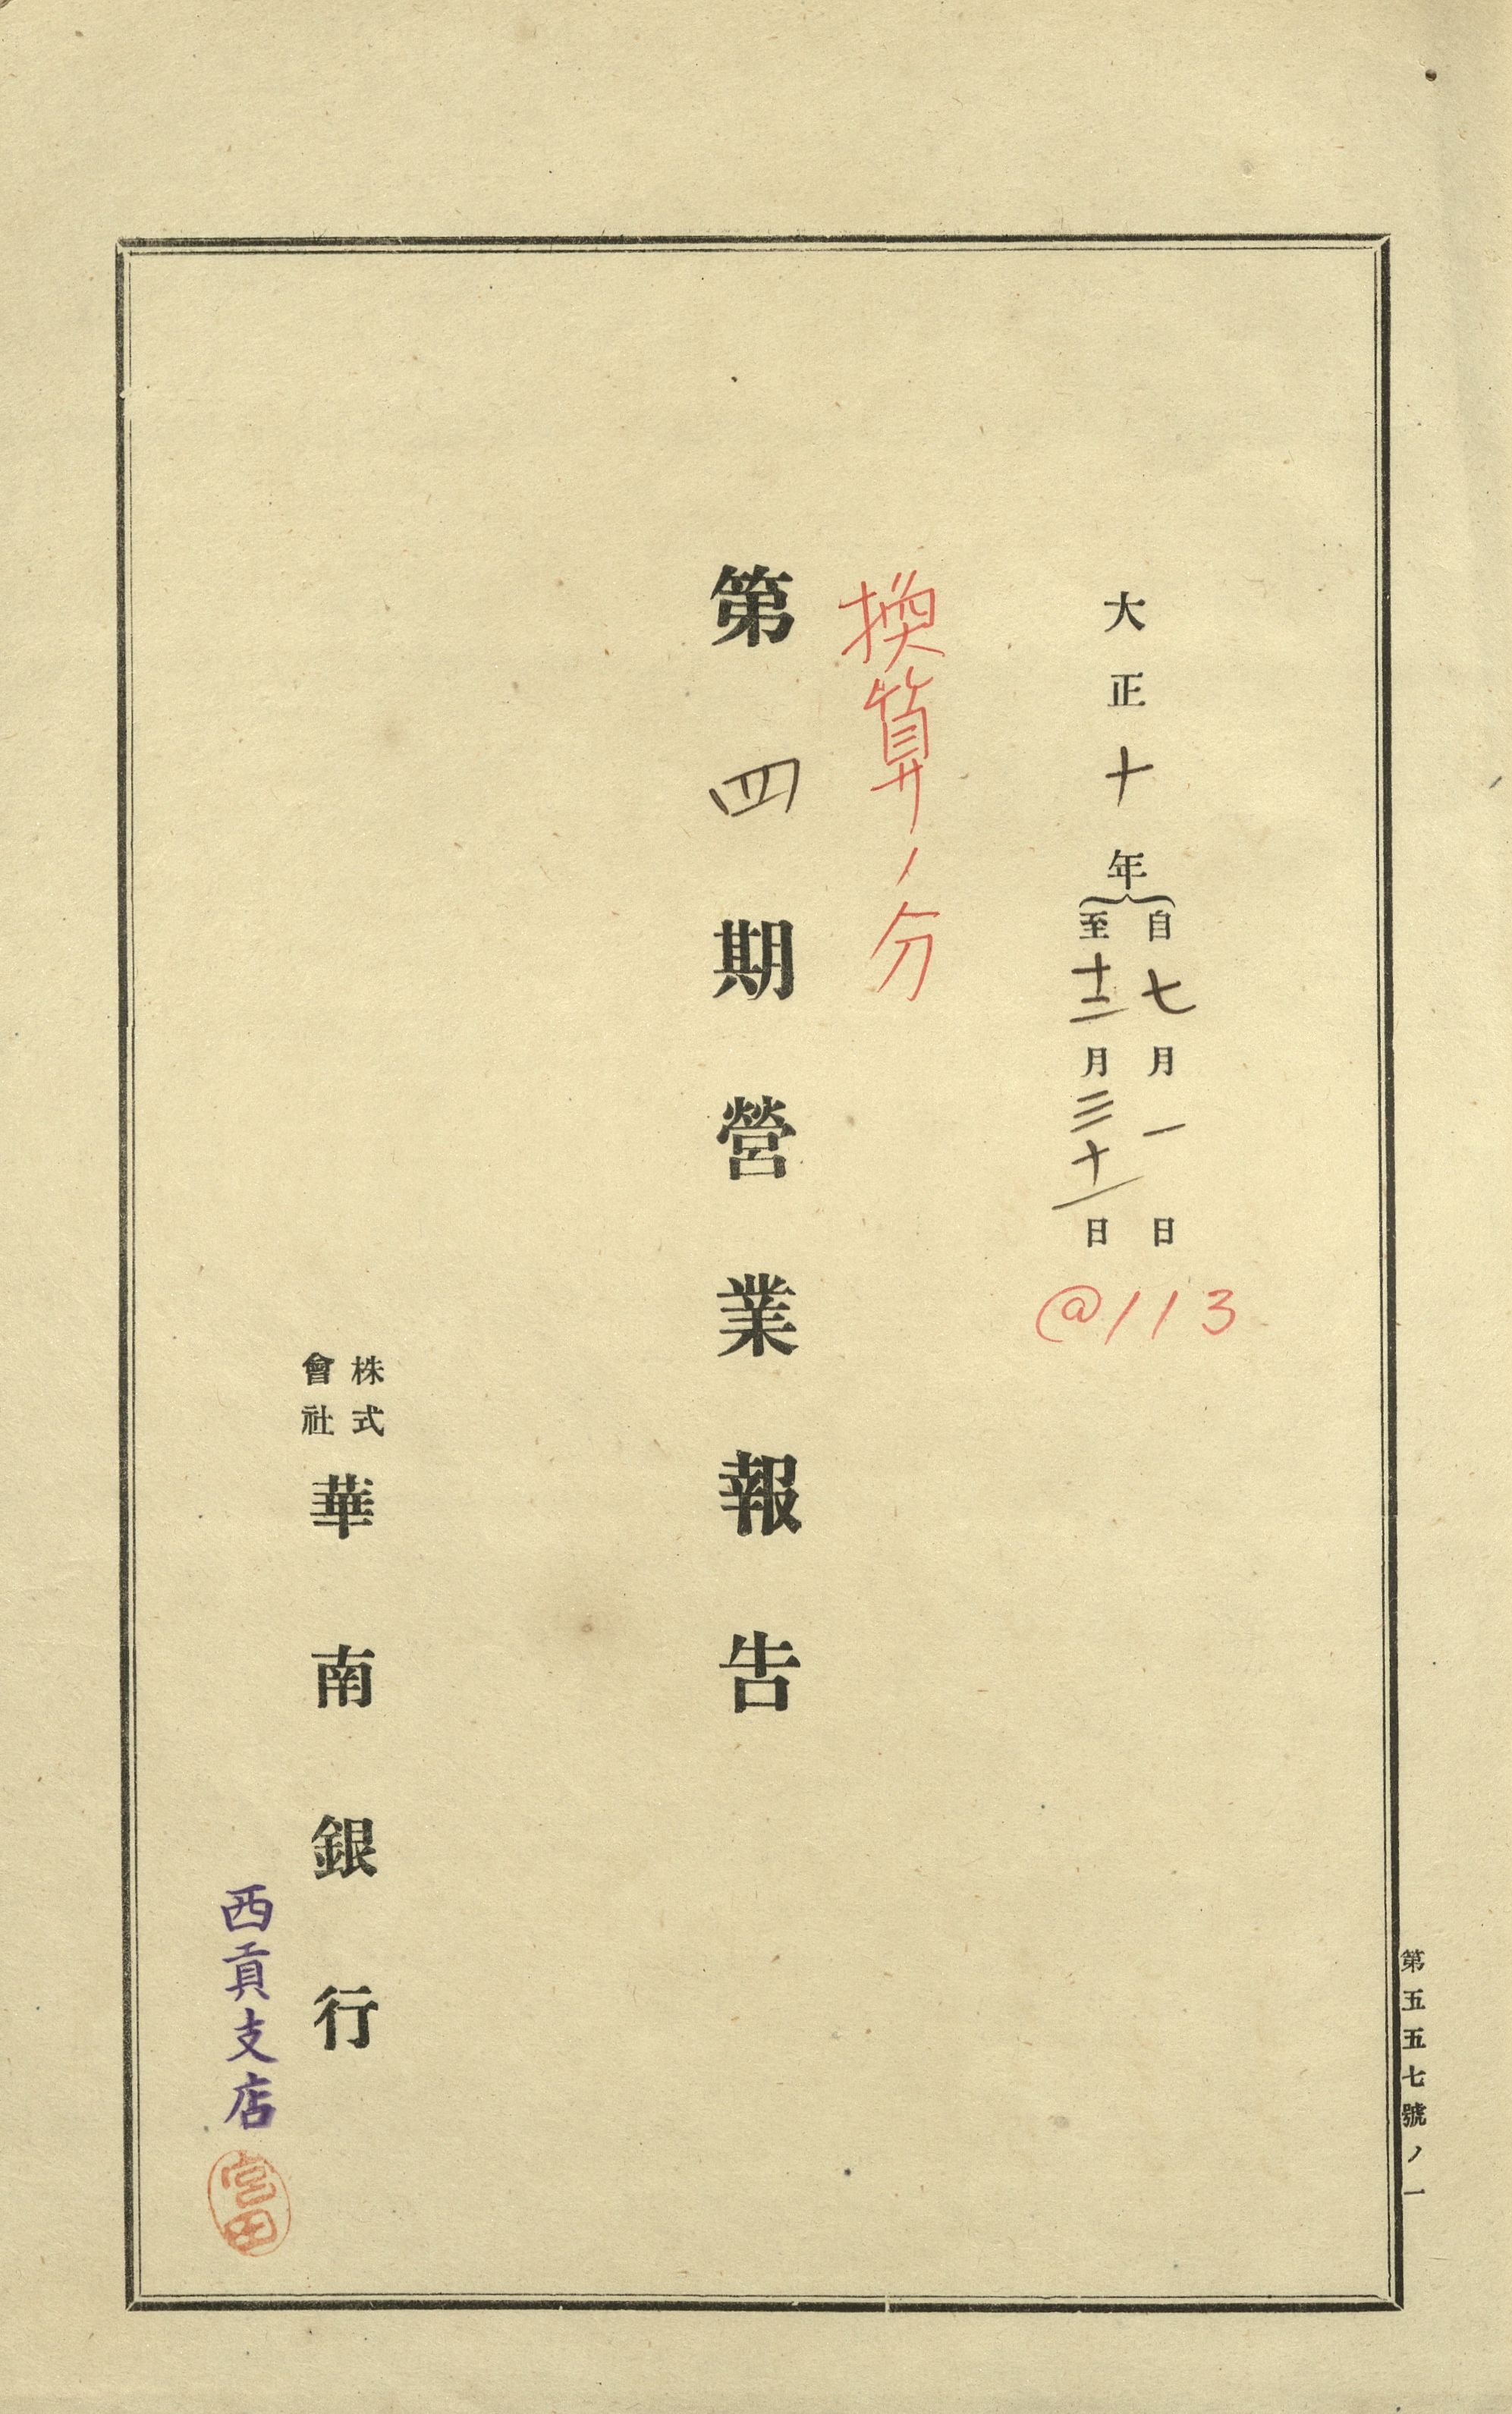 大正十年
自七月一日
至十二月三十一日
@113
換算ノ分
第四期營業報告
株式
會社
華南銀行
西貢支店
宮田
第五五七號ノ一